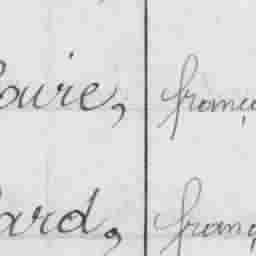 oire, franç
ard, franç